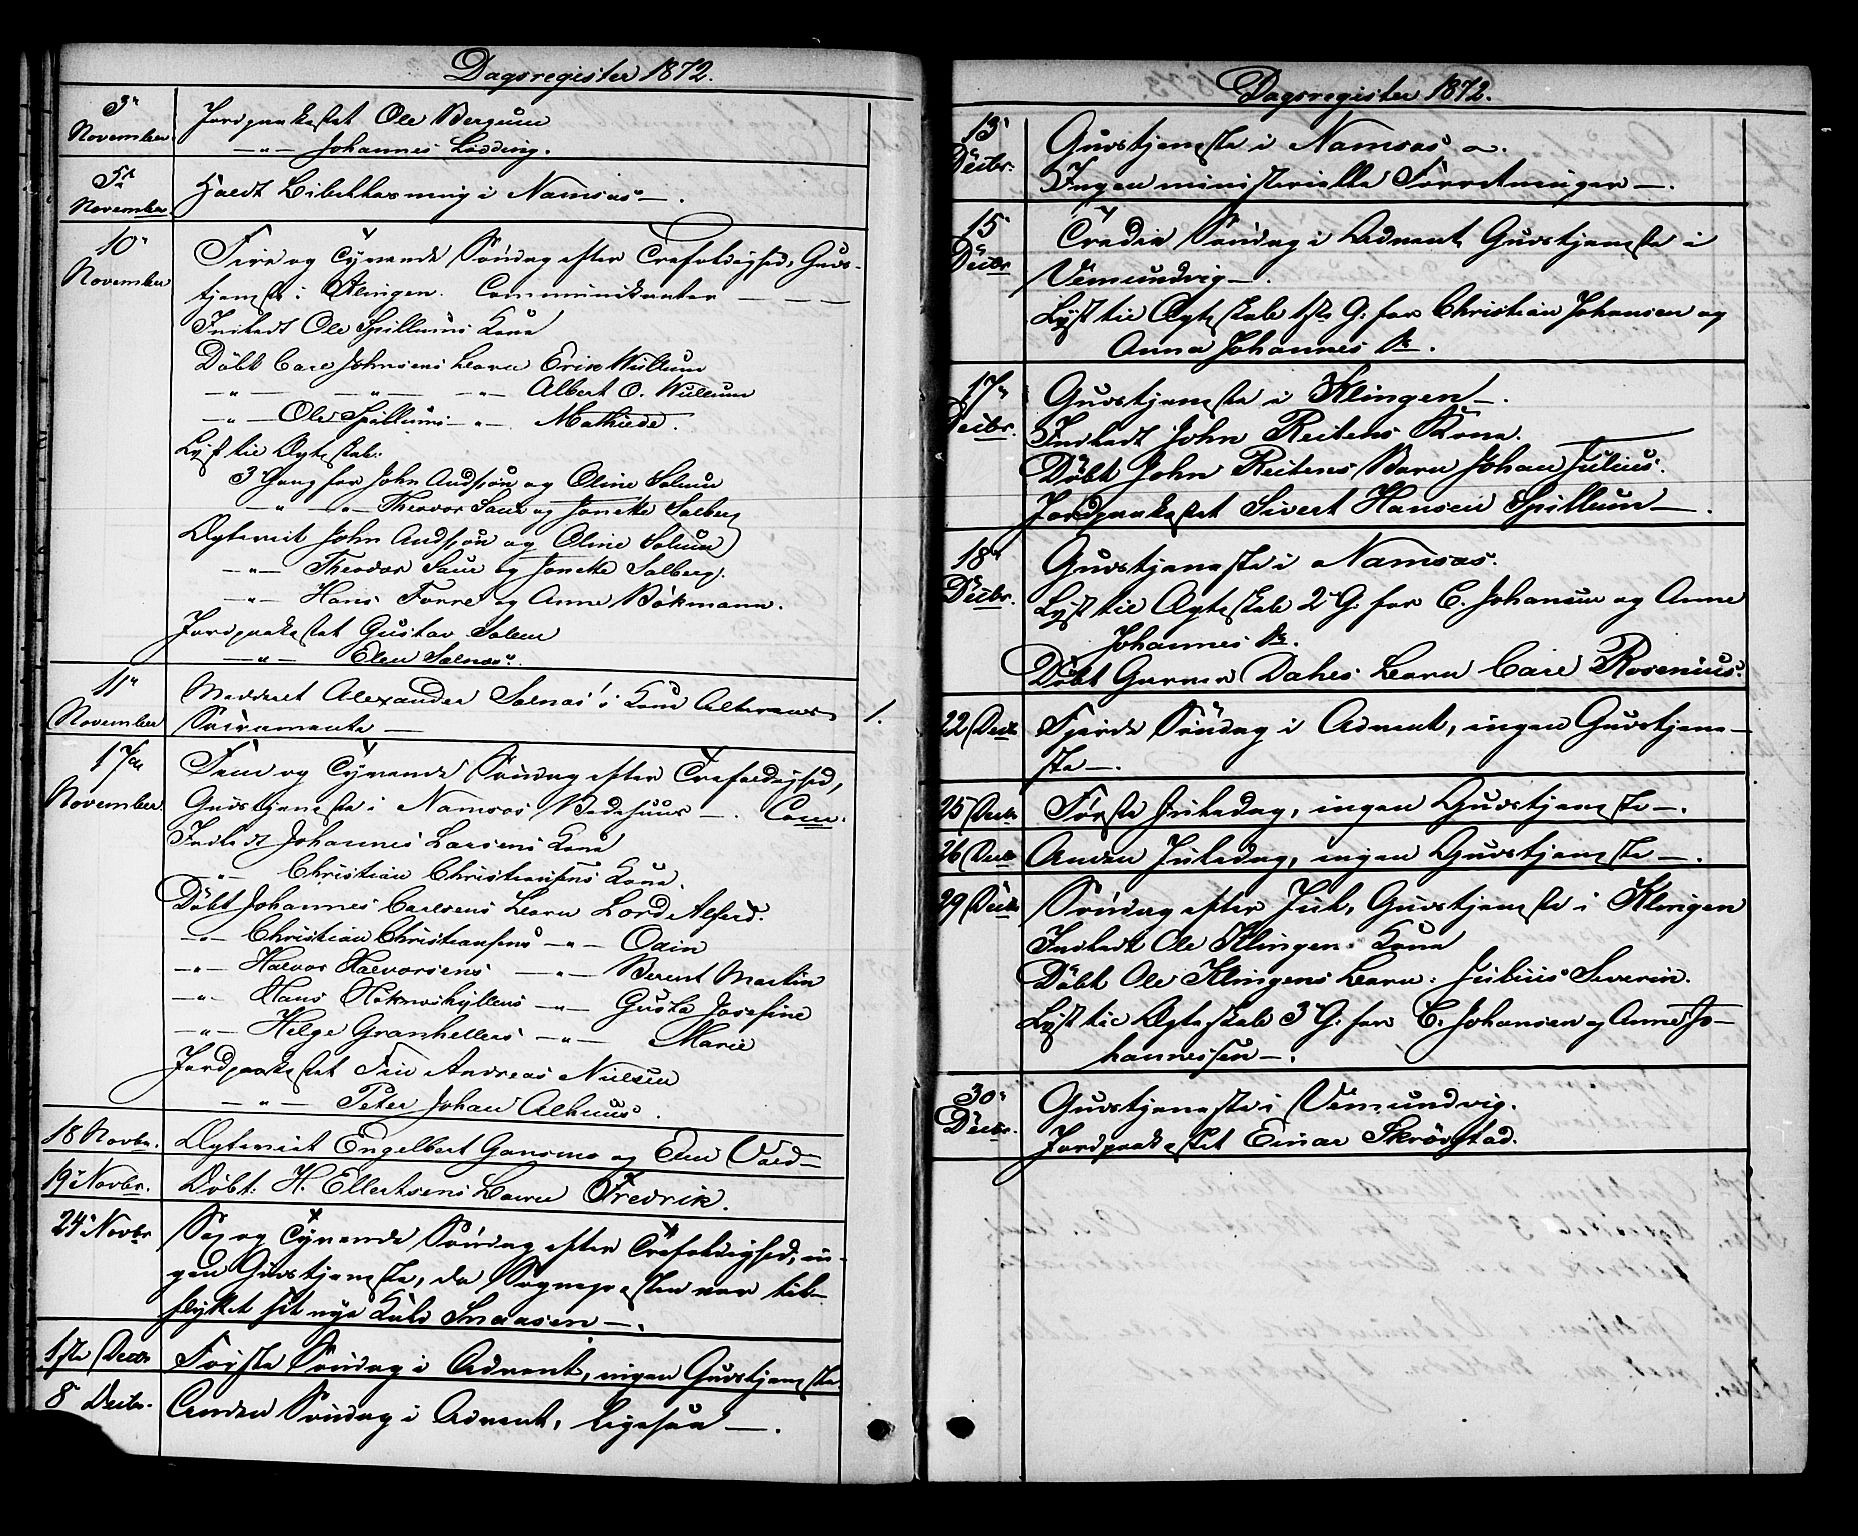 Dagsregister 1872.
3'
November
Jordpaakastet Ole Bergum
—"— Johannes Lödding.
5te
November
Holdt Bibellæsning i Namsos —.
10'
November
Fire og Tyvende Söndag efter Trefoldighed, Guds-
tjeneste i Klingen. Communikanter — — —
Indledt Ole Spillums Kone
Döbt Carl Johnsens Barn Erik Willum
—"— —"— —"— Albert O. Willum
—"— Ole Spillums —"— Mathilde.
Lyst til Ægteskab:
3' Gang for John Andsson og Oline Solum
—"— —"— Theodor Saur og Jonette Solberg
Ægteviet John Andsson og Oline Solum
—"— Theodor Saur og Jonette Solberg.
—"— Hans Forre og Anne Bökmann.
Jordpaakastet Gustav Solum
—"— Elen Selnæs.
11'
November
Meddeelt Alexander Selnæs's Kone Alterens 1.
Sacramente —
17de
November
Fem og Tyvende Söndag efter Trefoldighed,
Gudstjeneste i Namsos Bedehuus —. Com.
Indledt Johannes Larsens Kone
—"— Christian Christiansens Kone.
Döbt Johannes Carlsens Barn Lord Alfred.
—"— Christian Christiansens —"— Odin
—"— Halvor Halvorsens —"— Berent Martin
—"— Hans Höknæshyllens —"— Gusta Josefine
—"— Helge Granhellers —"— Marie
Jordpaakastet Tin Andreas Nielsen
—"— Peter Johan Alhuus.
18 Novbr.
Ægteviet Engelbert Gansmo og Elen Vold —
19' Novbr.
Döbt: H. Ellertsens Barn Fredrik.
24' Novbr
Sex og Tyvende Söndag efter Trefoldighed, in-
gen Gudstjeneste, da Sognepresten var til-
flyttet sit nye Kald Snaasen —.
1ste Decbr
Förste Söndag i Advent, ingen Gudstjeneste
8' Decbr.
Anden Söndag i Advent, Ligesaa —.
Dagsregister 1872.
13'
Decbr.
Gudstjeneste i Namsos —.
Ingen ministerielle Forretninger —.
15'
Decbr
Tredie Söndag i Advent, Gudstjeneste i
Vemundvig —.
Lyst til Ægteskab 1ste G. for Christian Johansen og
Anna Johannes Dr.
17'
Decbr.
Gudstjeneste i Klingen —.
Indledt John Reitens Kone.
Döbt John Reitens Barn Johan Julius.
Jordpaakastet Sivert Hansen Spillum —.
18'
Decbr.
Gudstjeneste i Namsos.
Lyst til Ægteskab 2' G. for C. Johansen og Anne
Johannes Dr.
Döbt Gunner Dahls Barn Carl Rosenius.
22 Decbr
Fjerde Söndag i Advent, ingen Gudstjene-
ste —.
25 Decbr
Förste Juledag, ingen Gudstjeneste —.
26 Decbr
Anden Juledag, ingen Gudstjeneste —.
29 Decbr
Söndag efter Jul, Gudstjeneste i Klingen
Indledt Ole Klingens Kone
Döbt Ole Klingens Barn: Julius Severin.
Lyst til Ægteskab 3' G. for C. Johansen og Anne Jo-
hannessen —.
30'
Decbr.
Gudstjeneste i Vemundvig.
Jordpaakastet Einar Skrövstad.